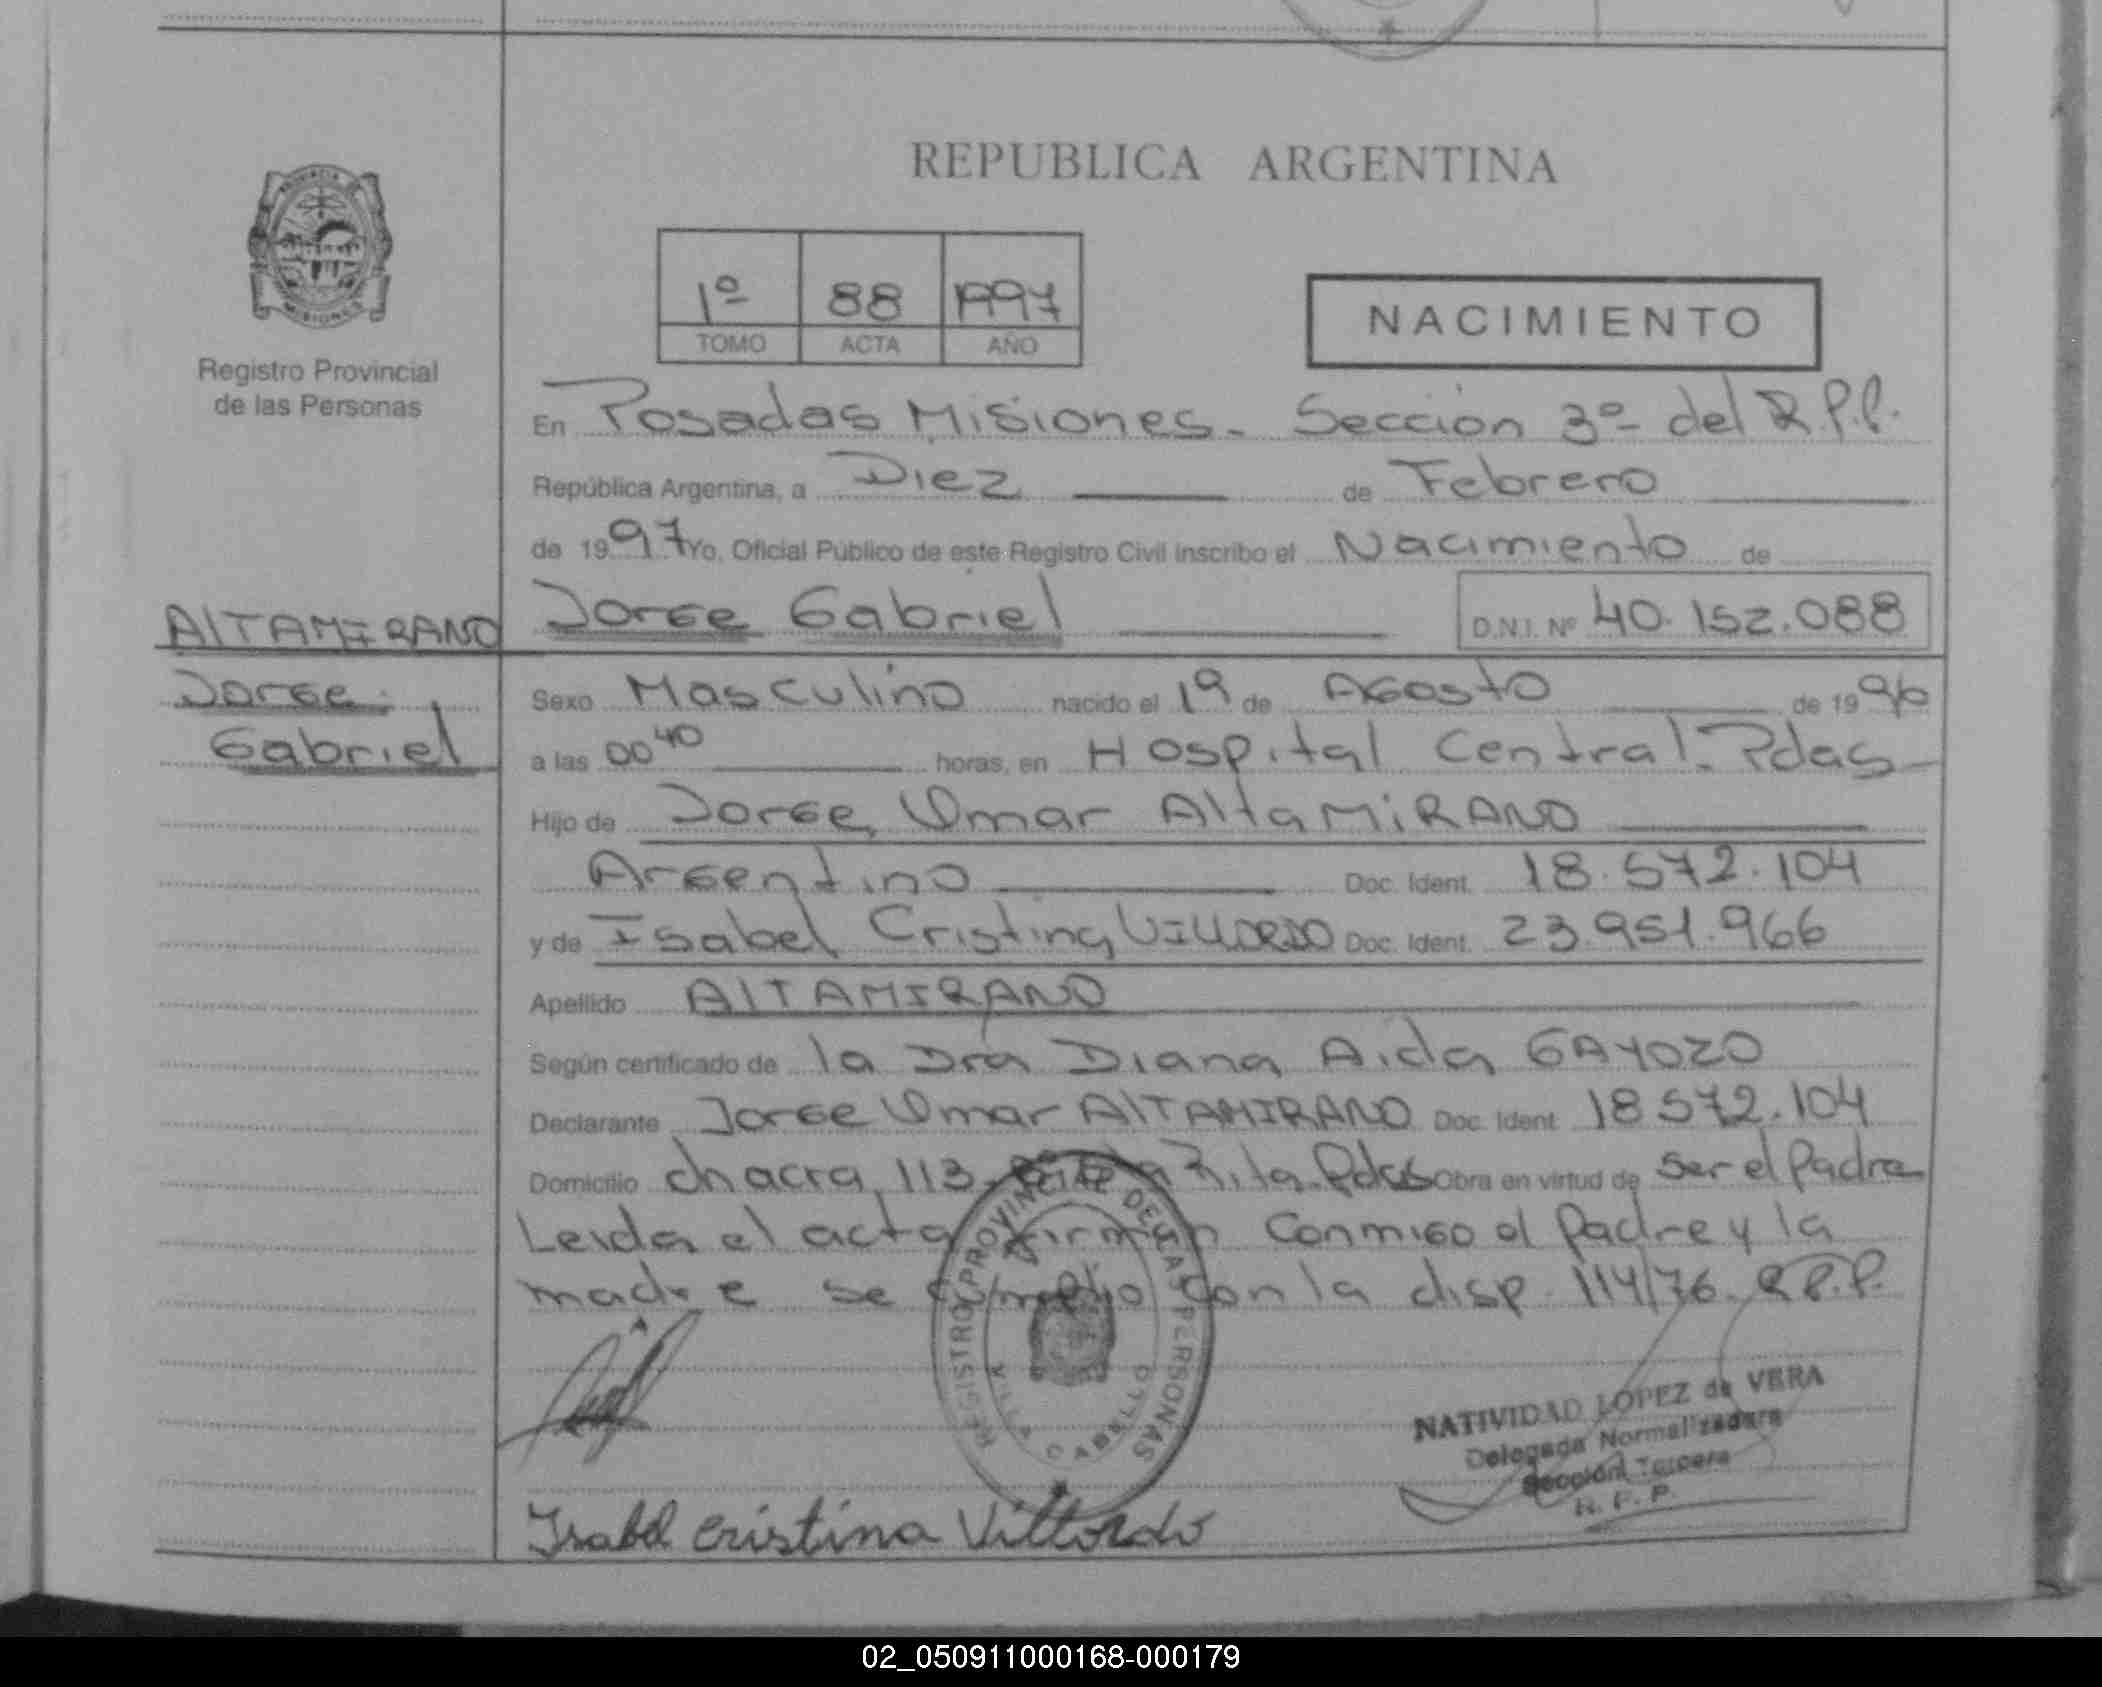 REPUBLICA ARGENTINA
PROVINCIA DE
MISIONES
Registro Provincial
de las Personas
1º 88 1997
TOMO ACTA AÑO
NACIMIENTO
En Posadas Misiones. Sección 3º del R.P.P.
República Argentina, a Diez de Febrero
de 1997 Yo, Oficial Público de este Registro Civil inscribo el Nacimiento de
ALTAMIRANO Jorge Gabriel D.N.I. Nº 40.152.088
Jorge
Gabriel
Sexo Masculino nacido el 19 de Agosto de 1996
a las 00 40 horas, en Hospital Central. Pdas
Hijo de Jorge Omar AltaMiRANO
Argentino Doc. Ident. 18.572.104
y de Isabel Cristina VILLORDO Doc. Ident. 23.951.966
Apellido ALTAMIRANO
Según certificado de la Dra Diana Aida GAYOZO
Declarante Jorge Omar ALTAMIRANO Doc. Ident 18 572.104
Domicilio chacra 113 Rita Pdas Obra en virtud de Ser el Padre
Leida el acta firman conmigo el Padre y la
madre se cumplio con la disp. 114/76 R.P.P.
REGISTRO PROVINCIAL DE LAS PERSONAS
VILLA CABELLO
NATIVIDAD LOPEZ de VERA
Delegada Normalizadora
Sección Tercera
R. P. P.
Isabel cristina Villordo
02_050911000168-000179